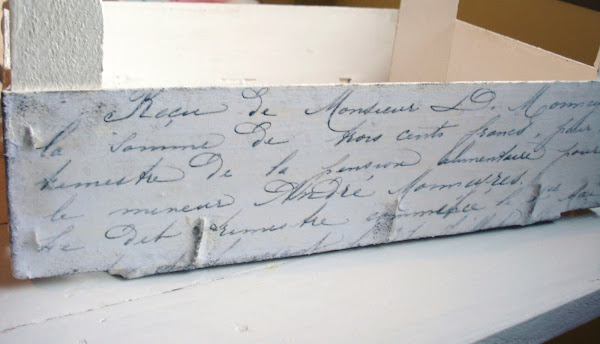 Reçu de Monsieur D. Monney
la somme de trois cents francs, pour
trimestre de la pension alimentaire pour
le mineur André Monneyres.
dit trimestre commence le